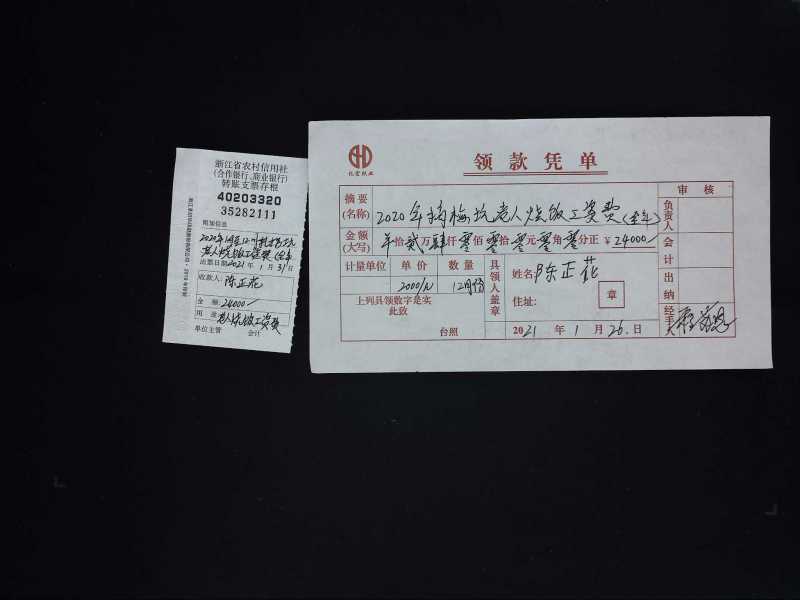 浙江省农村信用社
(合作银行、商业银行)
转账支票存根
40203320
35282111
附加信息
老人烧饭工资费(全年
出票日期2021年1月31日
收款人:
陈正花
金 额:24000/
用 途:老人烧饭工资费
单位主管 会计
领款凭单
摘要
(名称)
2020年 梅坑老人烧饭工资费(全年)
金额
(大写)
拾贰万肆仟零佰零拾零元零角零分正 ¥24000/
计量单位 单价 数量
2000/月 12月份
上列具领数字是实
此致
台照
具领人盖章
姓名:陈正花
住址:
章
2021年1月26日
审核
负责人
会计
出纳
经手人